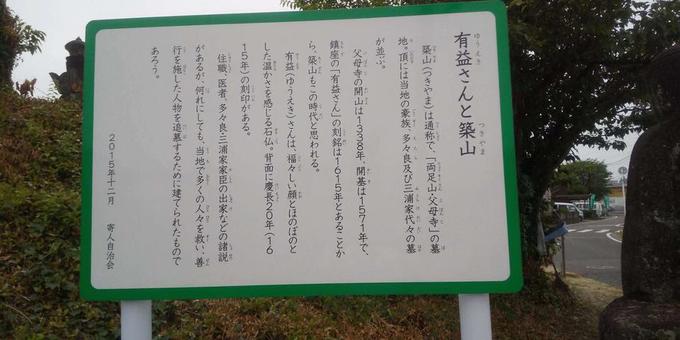 有益さんと築山
ゆうえき
つきやま
築山(つきやま)は通称で、「両足山・父母寺」の墓
地。頂には当地の豪族、多々良及び三浦家代々の墓
が並ぶ。
父母寺の開山は1338年、開基は1571年で、
鎮座の「有益さん」の刻銘は1615年とあることか
ら、築山もこの時代と思われる。
有益(ゆうえき)さんは、福々しい顔とほのぼのと
した温かさを感じる石仏。背面に慶長20年(16
15年)の刻印がある。
住職、医者、多々良三浦家家臣の出家などの諸説
があるが、何れにしても、当地で多くの人々を救い、善
行を施した人物を追慕するために建てられたもので
あろう。
2015年十二月
寄人自治会